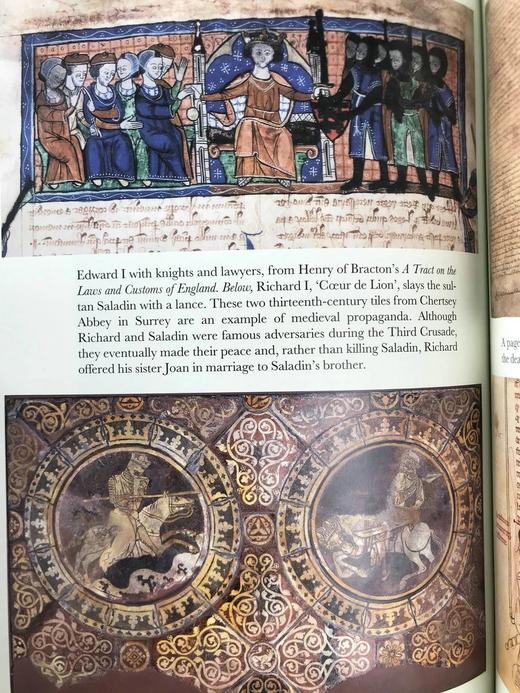 Edward I with knights and lawyers, from Henry of Bracton's A Tract on the
Laws and Customs of England. Below, Richard I, 'Cœur de Lion', slays the sul-
tan Saladin with a lance. These two thirteenth-century tiles from Chertsey
Abbey in Surrey are an example of medieval propaganda. Although
Richard and Saladin were famous adversaries during the Third Crusade,
they eventually made their peace and, rather than killing Saladin, Richard
offered his sister Joan in marriage to Saladin's brother.
A page
the dea